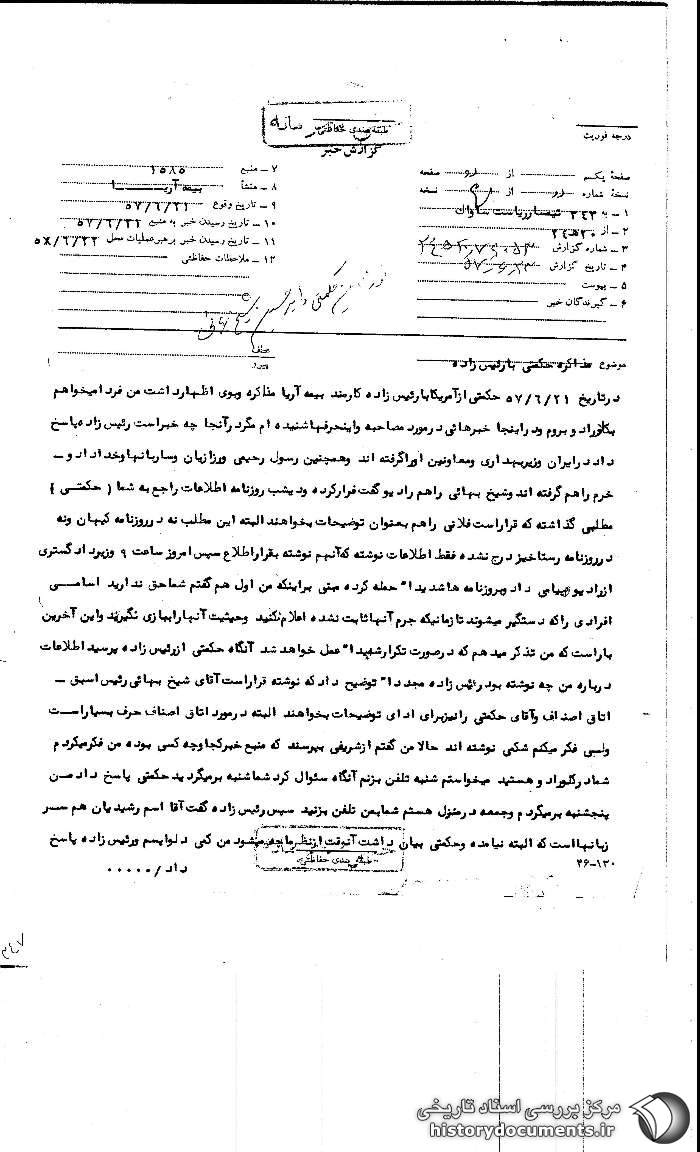 درجه فوریت
طبقه بندی حفاظتی
گزارش خبر
صفحه یکم از صفحه
نسخه شماره از نسخه
۱ - به ۳۴۳ تیمسار ریاست ساواک
۲ - از ۲۰ ه ۲۴
۳ - شماره گزارش
۴ - تاریخ گزارش
۵ - پیوست
۶ - گیرندگان خبر
۷ - منبع ۱۵۸۵
۸ - منشأ بیمه آریا
۹ - تاریخ وقوع ۵۷/۶/۲۱
۱۰ - تاریخ رسیدن خبر به منبع ۵۷/۶/۲۲
۱۱ - تاریخ رسیدن خبر برهبر عملیات محل ۵۷/۶/۲۲
۱۲ - ملاحظات حفاظتی
موضوع مذاکره حکمتی با رئیس زاده
در تاریخ ۵۷/۶/۲۱ حکمتی از آمریکا با رئیس زاده کارمند بیمه آریا مذاکره و بوی اظهار داشت من فردا میخواهم
بکلورادو بروم و در اینجا خبرهائی در مورد مصاحبه و اینحرفها شنیده ام مگر در آنجا چه خبر است رئیس زاده پاسخ
داد در ایران وزیر بهداری و معاونین او را گرفته اند و همچنین رسول رحیمی و رزازیان و ساربانها و خداداد و -
خرم را هم گرفته اند و شیخ بهائی را هم رادیو گفت فرار کرده و دیشب روزنامه اطلاعات راجع به شما ( حکمتی )
مطلبی گذاشته که قرار است فلانی را هم بعنوان توضیحات بخواهند البته این مطلب نه در روزنامه کیهان و نه
در روزنامه رستاخیز درج نشده فقط اطلاعات نوشته که آنهم نوشته بقرار اطلاع سپس امروز ساعت ۹ وزیر دادگستری
از رادیو پیامی داد و بروزنامه ها شدیدا" حمله کرده مبنی بر اینکه من اول هم گفتم شما حق ندارید اسامی
افرادی را که دستگیر میشوند تا زمانیکه جرم آنها ثابت نشده اعلام نکنید و حیثیت آنها را ببازی نگیرید و این آخرین
بار است که من تذکر میدهم که در صورت تکرار شدیدا" عمل خواهد شد آنگاه حکمتی از رئیس زاده پرسید اطلاعات
درباره من چه نوشته بود رئیس زاده مجددا" توضیح داد که نوشته قرار است آقای شیخ بهائی رئیس اسبق -
اتاق اصناف و آقای حکمتی را نیز برای ادای توضیحات بخواهند البته در مورد اتاق اصناف حرف بسیار است
ولی فکر میکنم شکمی نوشته اند حالا من گفتم از شریفی بپرسند که منبع خبر کجا و چه کسی بوده من فکر میکردم
شما در کلورادو هستید میخواستم شنبه تلفن بزنم آنگاه سئوال کرد شما شنبه برمیگردید حکمتی پاسخ داد من
پنجشنبه برمیگردم و جمعه در منزل هستم شما بمن تلفن بزنید سپس رئیس زاده گفت آقا اسم رشیدیان هم سر
زبانها است که البته نیامده و حکمتی بیان داشت آنوقت از نظر ما چه میشود من کی دلواپسم و رئیس زاده پاسخ
داد / .....
طبقه بندی حفاظتی
۳۶-۱۲۰
مرکز بررسی اسناد تاریخی
historydocuments.ir